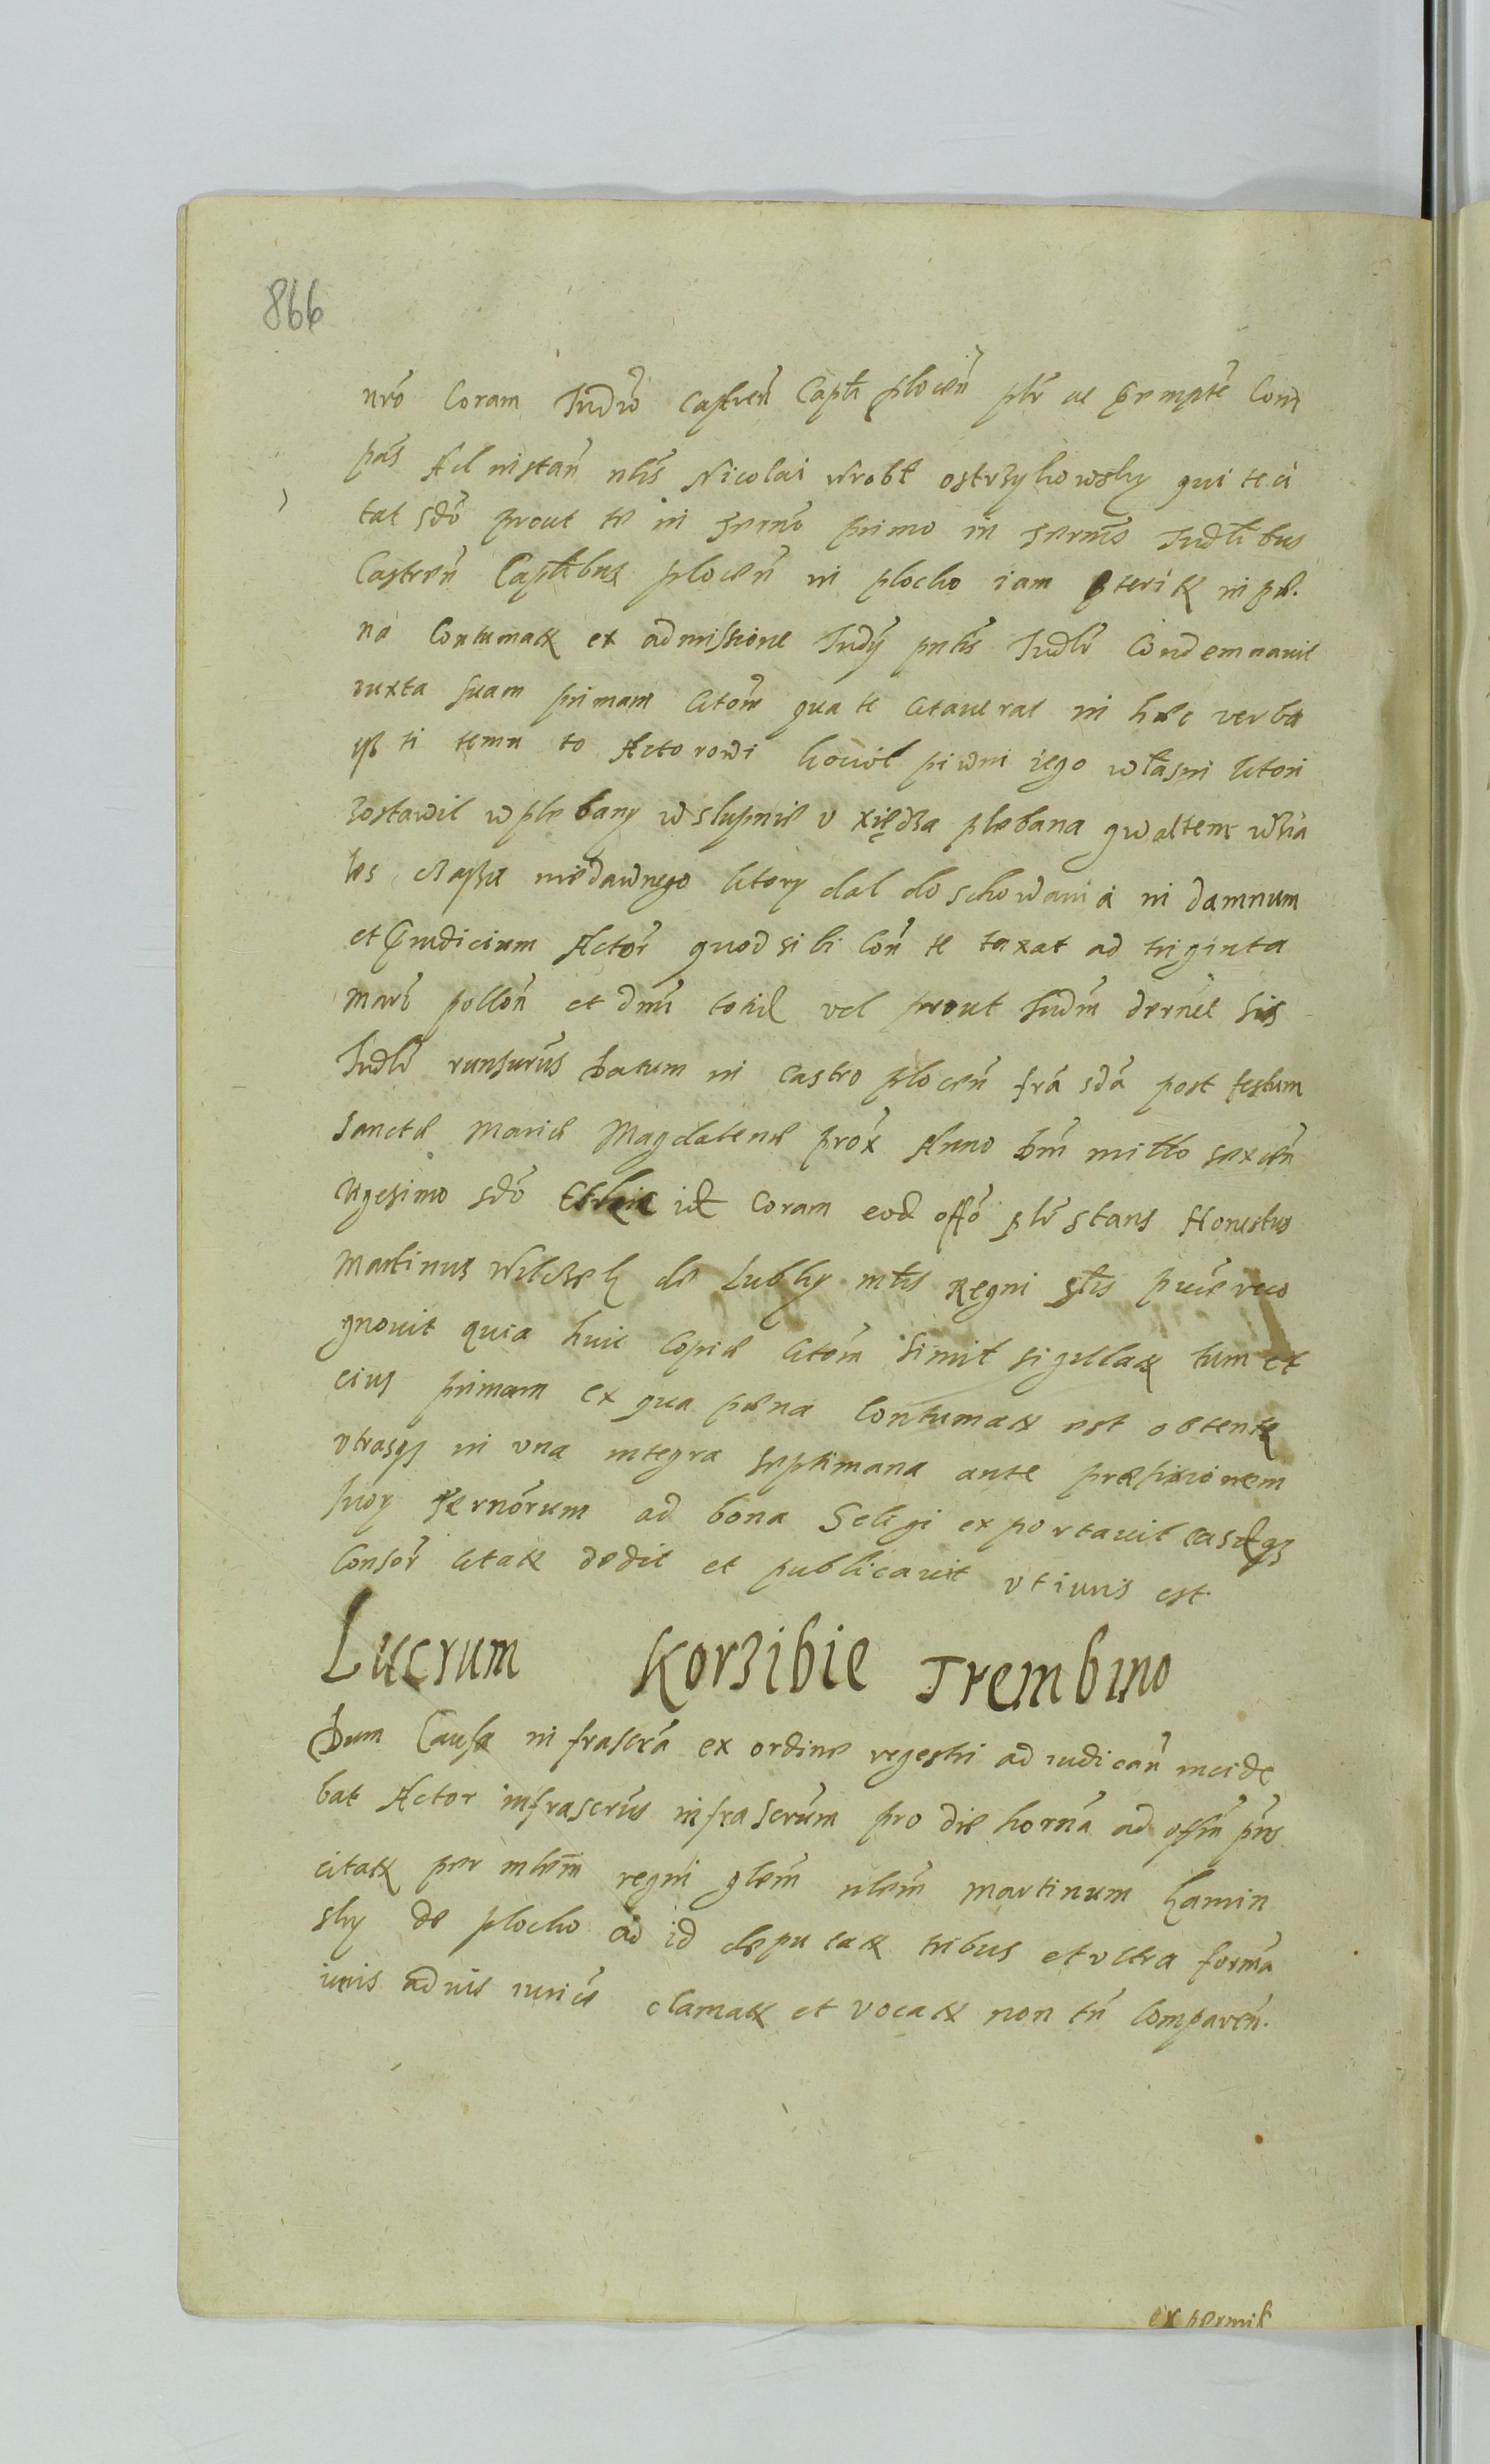 866
nrō Coram Iudiō castren̄ Capt̄i plocen̄ plr̄ ac Peremptē Com
pās Ad instan̄ nlīs Nicolai Wrobl ostrzykowsky qui te ci
tat sdō prout te in termō primo in termīs Iudl̄ibus
Castren̄ Capt̄libus plocen̄ in plocko iam pteritis in pœ
na Contumatis ex admissione Iudÿ pntīs Iudlr̄ Condemnauit
iuxta suam primam Citōm qua te Citauerat in hæc verba
yż ti temu to Actorowi kocieł piwni iego własni ktori
zostawil w plebany w slupnie v xiędza plebana gwaltem wzia
les czassu niedawnego ktory dal do schowania in damnum
et Preiudicium Actor̄ quod sibi Con̄ te taxat ad triginta
marc̄ pollōn et dnī totid vel prout Iudm̄ dernēt Sis
Iudlr̄ runsurūs Datum in castro plocen̄ frā sdā post festum
Sanctæ Mariæ Magdalenæ prox̄ Anno Dnī mitto sexcen̄
vigesimo sdō id Coram eod offō plr̄ stans Honestus
Martinus Wilczek de Lubky mlīs Regni glīs pucē reco
gnouit quia huic Copiæ Citōm simil sigillatis tum et
eius primam ex qua pœna Contumatis est obtenta
vtrasq in vna integra septimana ante præfixionem
suor ternōrum ad bona Seligi exportauit easdq
Consor̄ Citatis dedit et publicauit vt iuris est
Lucrum Korzibie Trembino
Dum Causa infrascrā ex ordine regestri ad iudican̄ incide
bat Actor infrascrūs infrascrūm pro die hornā ad offm̄ pns̄
citatis per mlem̄ regni glem̄ nlem̄ Martinum Kamin
sky de plocko ad id deputatis tribus et vltra formā
iuris aduis iuricīs clamatis et vocatis non tn̄ Comparen̄.
ex permis